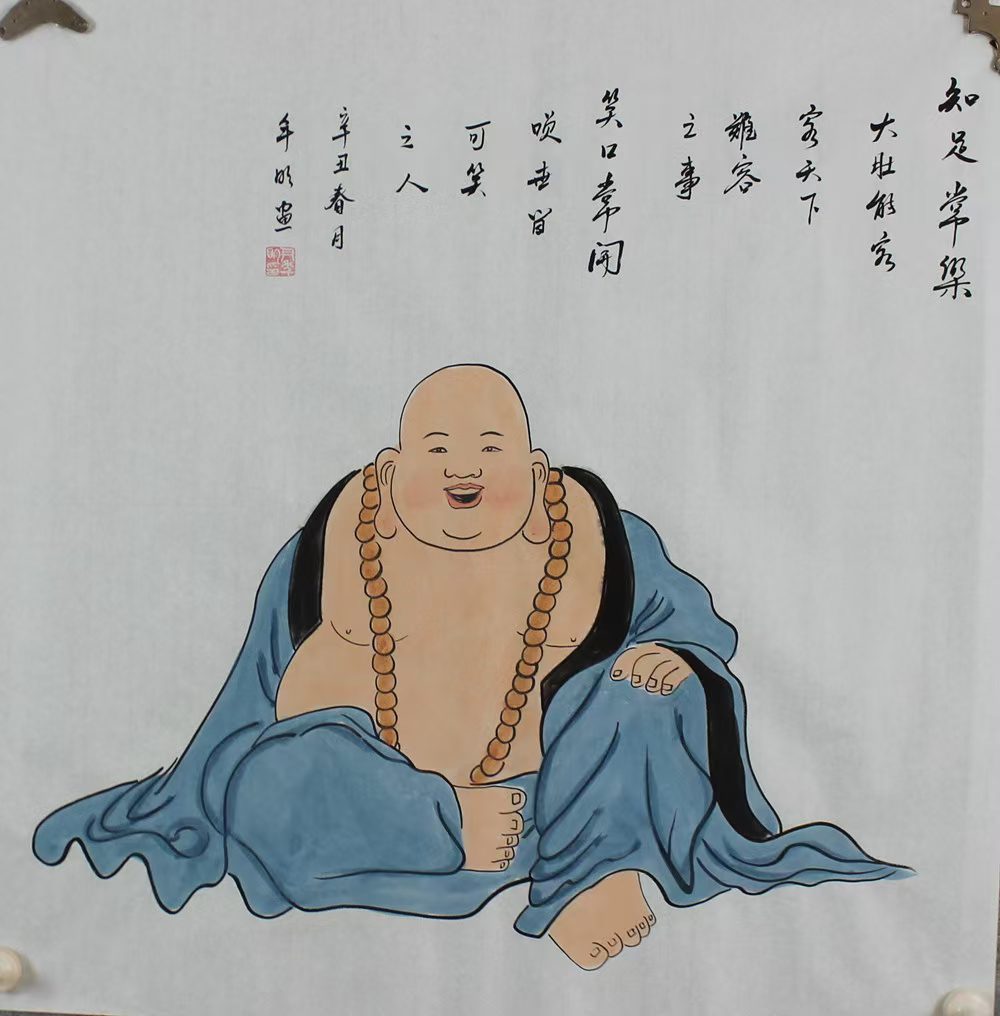 知足常樂
大肚能容
容天下
難容
之事
笑口常開
咲世间
可笑
之人
辛丑春月
年明畫